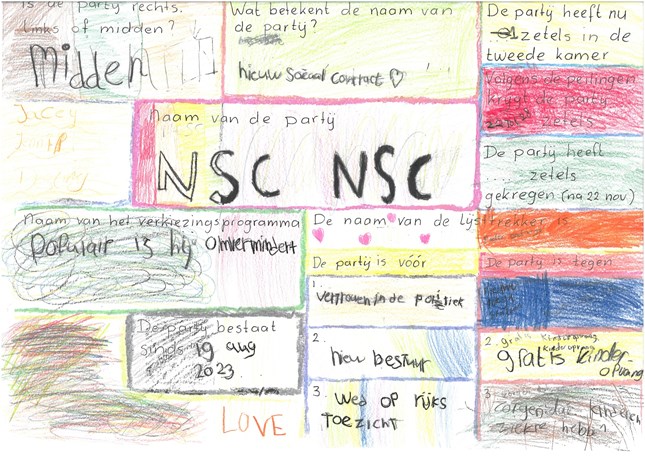 Is de partij rechts.
links of midden?
midden
Wat betekent de naam van
de partij?
nieuw Sociaal contract
De partij heeft nu
1 zetels in de
tweede kamer
Volgens de peilingen
krijgt de partij
zetels
De partij heeft
.... zetels
gekregen (na 22 nov)
Naam van de partij
NSC NSC
Naam van het verkiezingsprogramma
populair is hij omvermindert
De naam van de lijsttrekker is
De partij is vóór
1.
vertrouwen in de politiek
2.
nieu bestuur
3.
Wed op rijks
toezicht
De partij is tegen
2. gratis kinderopvang
gratis kinder-
opvang
3
De partij bestaat
sinds 19 aug
2023
LOVE